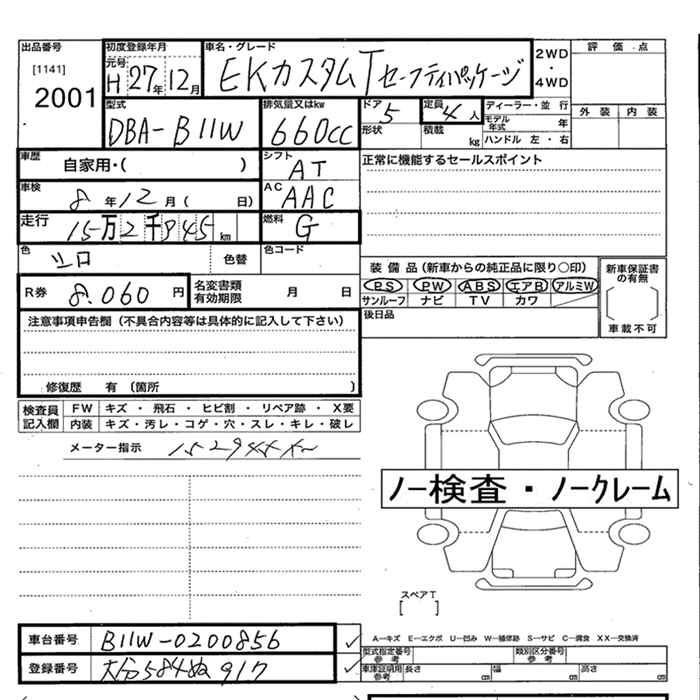 出品番号 初度登録年月 車名・グレード 2WD 評価点
[1141] 元号 H 27年 12月 EKカスタムT セーフティパッケージ ・ 4WD
2001 外装 内装
型式 排気量又はkw ドア 定員 ディーラー・並行
DBA-B11W 660cc 5 4人 モデル年式 年
形状 積載 kg ハンドル 左・右
車歴 自家用・( ) シフト AT 正常に機能するセールスポイント
車検 8年12月( 日) AC AAC
走行 15万2千945km 燃料 G
色 シロ 色替 色コード
装備品(新車からの純正品に限り○印) 新車保証書の有無
R券 8.060円 名変書類有効期限 月 日 PS PW ABS エアB アルミW
サンルーフ ナビ TV カワ
後日品 車載不可
注意事項申告欄(不具合内容等は具体的に記入して下さい)
修復歴 有(箇所 )
検査員記入欄 FW キズ・飛石・ヒビ割・リペア跡・X要
内装 キズ・汚レ・コゲ・穴・スレ・キレ・破レ
メーター指示
ノー検査・ノークレーム
スペアT
[ ]
A-キズ E-エクボ U-凹み W-補修跡 S-サビ C-腐食 XX-交換済
車台番号 B11W-0200856 型式指定番号 参考 類別区分番号 参考
登録番号 大分584ぬ917 車庫証明用 参考 長さ cm 幅 cm 高さ cm